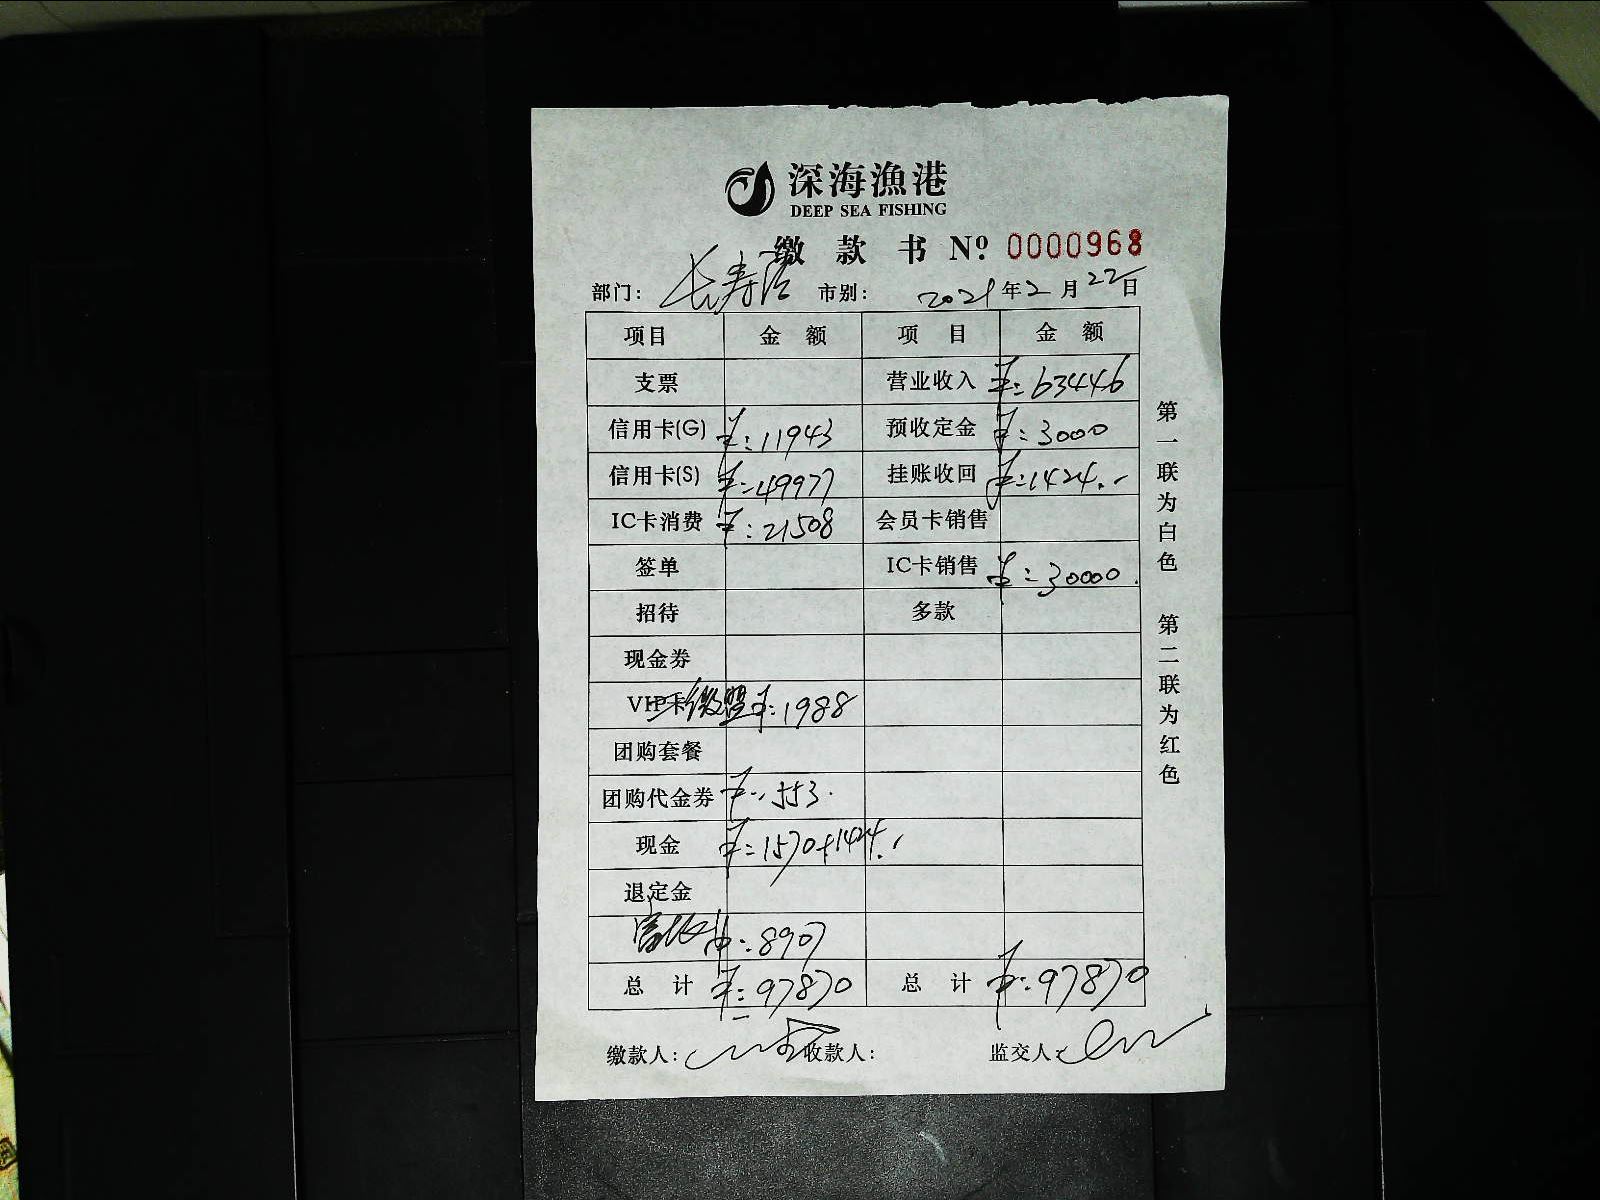 深海漁港
DEEP SEA FISHING
缴款书 Nº 0000968
部门： 长寿路 市别： 2021年2月22日
项目 金额 项目 金额
支票 营业收入 ¥：63446
信用卡(G) ¥：11943 预收定金 ¥：3000
信用卡(S) ¥：49977 挂账收回 ¥：1424.-
IC卡消费 ¥：21508 会员卡销售
签单 IC卡销售 ¥：30000.
招待 多款
现金券
VIP卡 微盟 ¥：1988
团购套餐
团购代金券 ¥：553.
现金 ¥：1570+1424.-
退定金
¥：8907
总计 ¥：97870 总计 ¥：97870
缴款人： 收款人： 监交人：
第一联为白色 第二联为红色